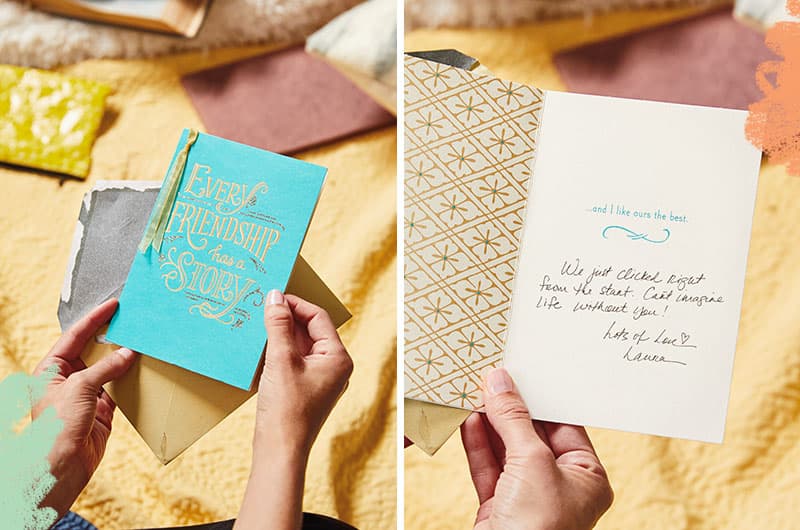 EVERY
FRIENDSHIP
has a
STORY
...and I like ours the best.
We just clicked right
from the start. Can't imagine
life without you!
Lots of Love♡
Laura